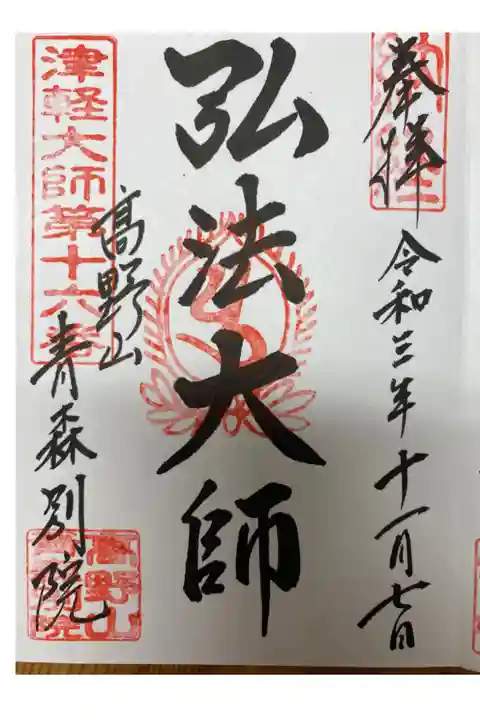 奉拝
令和三年十一月七日
弘法大師
高野山
青森別院
津軽大師第十六番
高野山